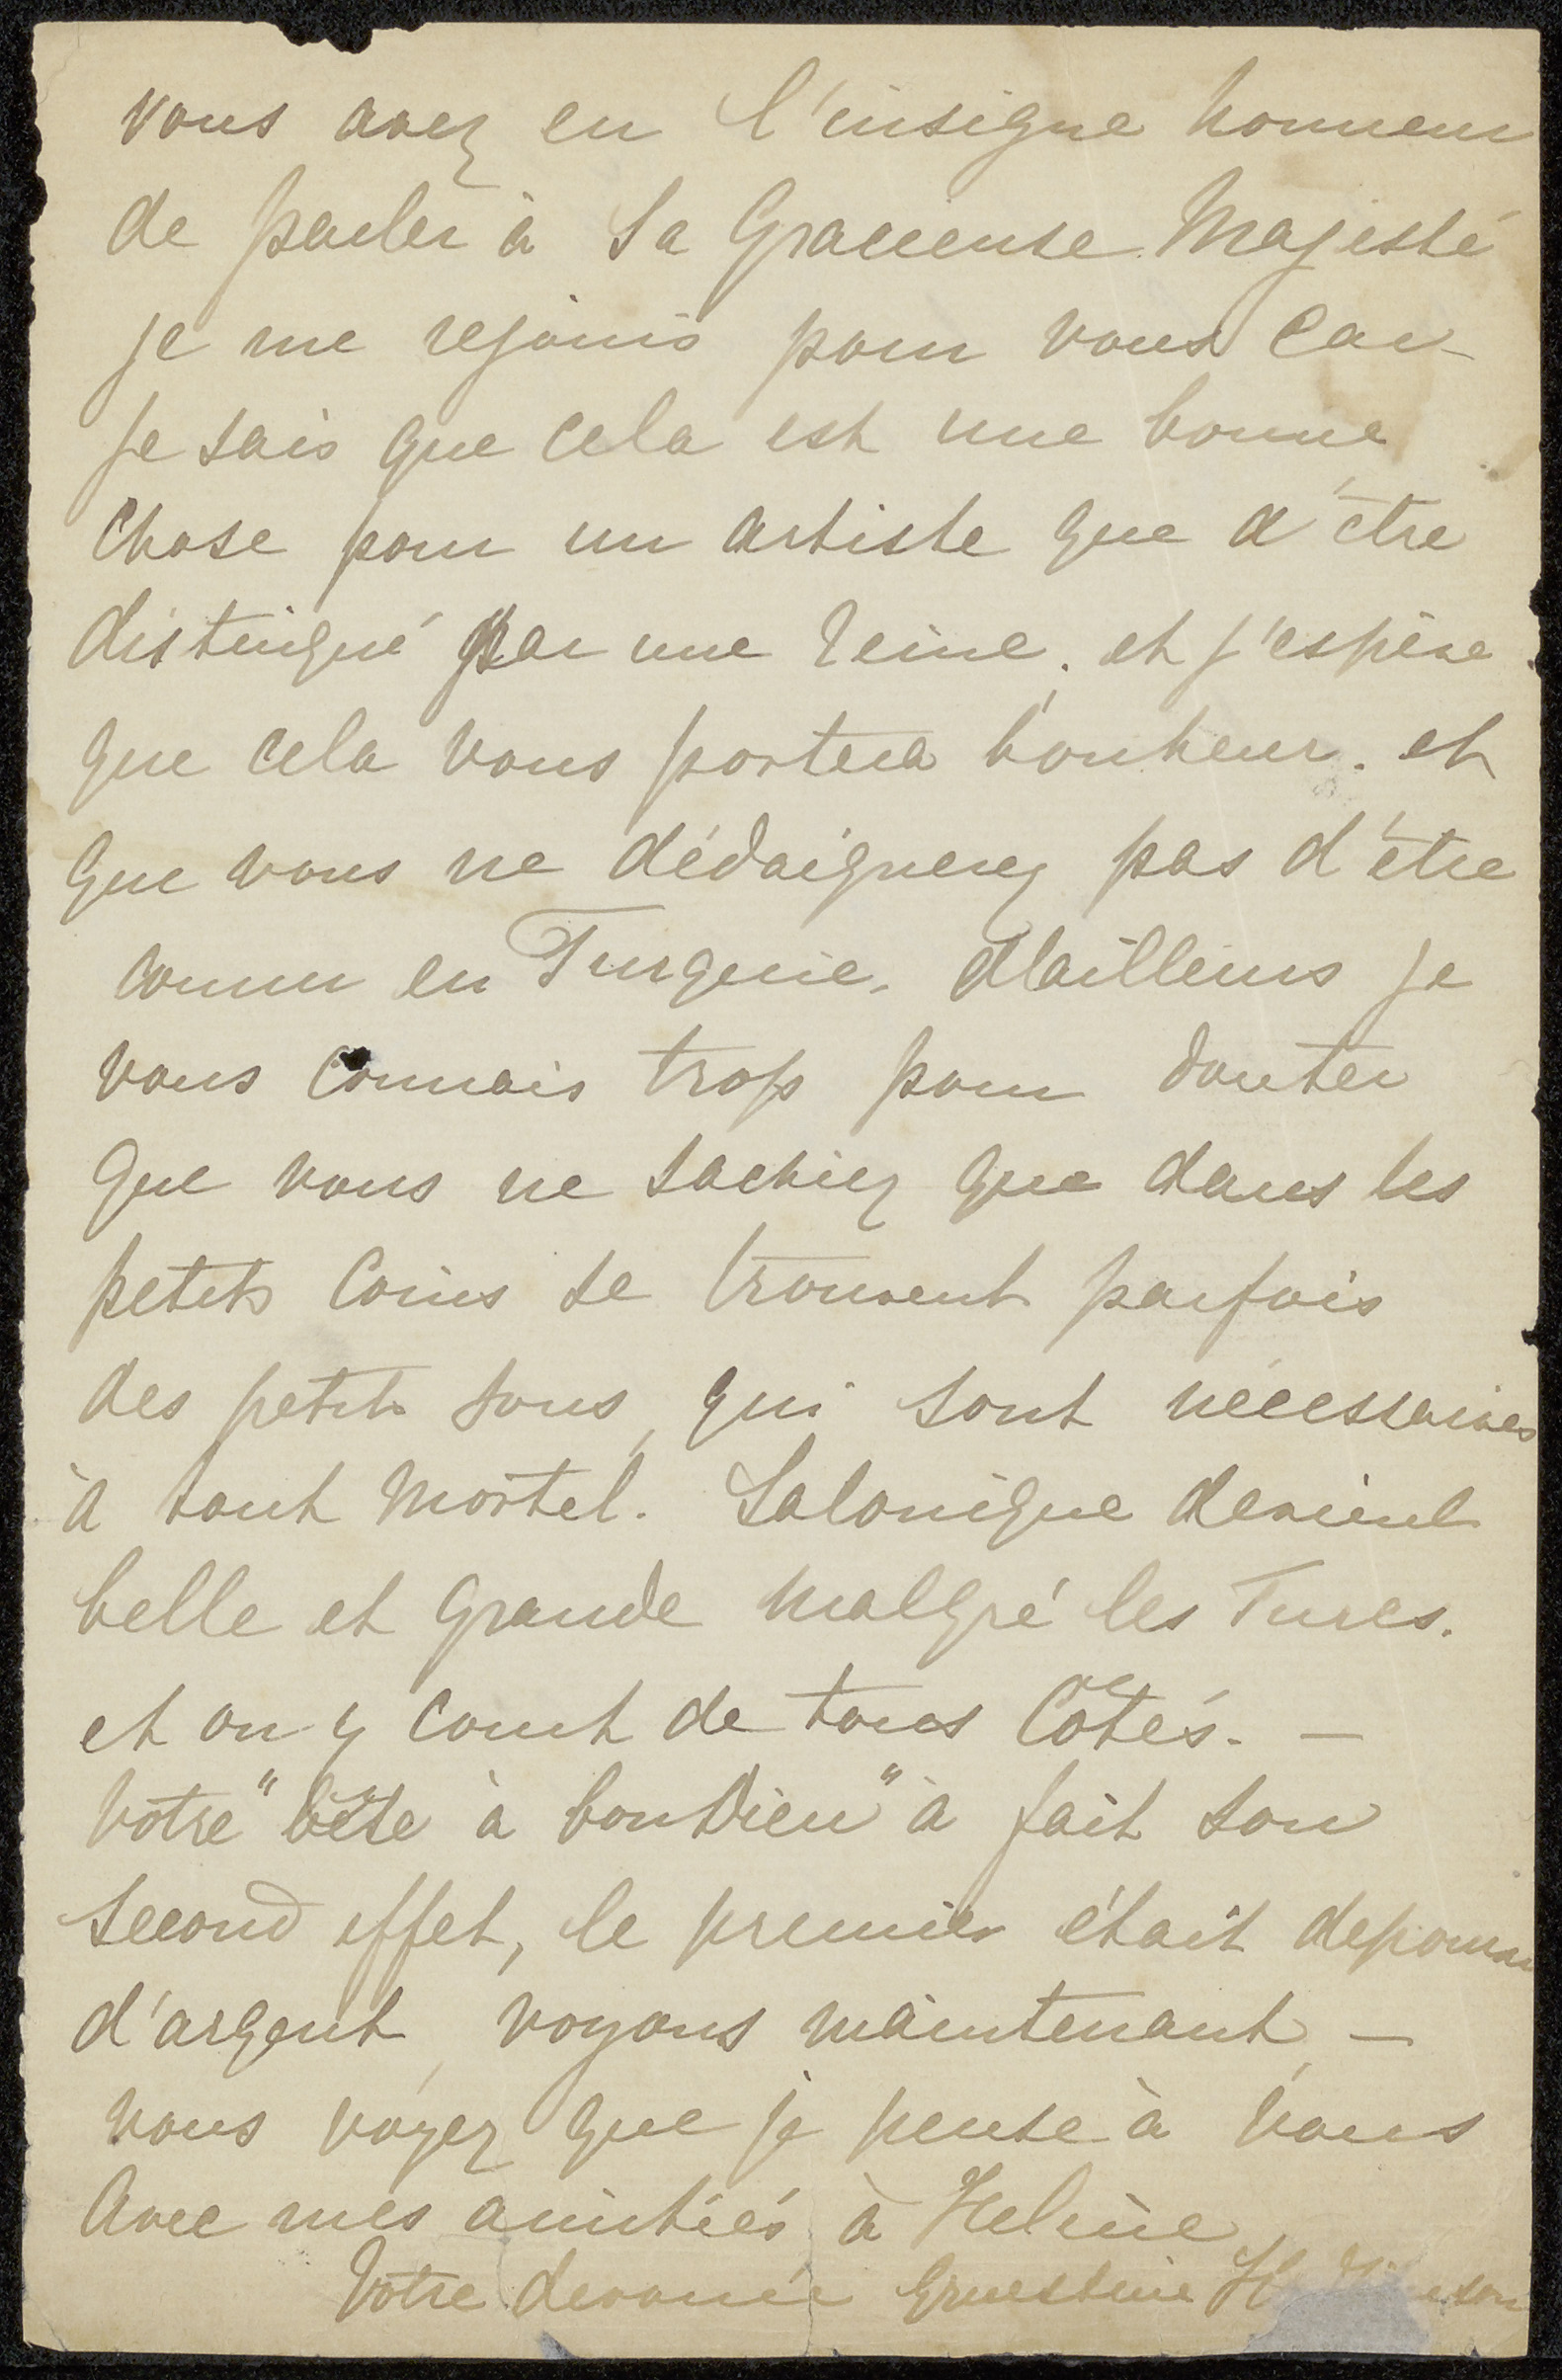 vous avez eu l'insigne honneur
de parler à Sa Gracieuse Majesté
je me rejouis pour vous car
je sais que cela est une bonne
chose pour un artiste que d'être
distingué par une reine. et j'espère
que cela vous portera bonheur. et
que vous ne dédaignerez pas d'être
connu en Turquie. d'ailleurs je
vous connais trop pour douter
que vous ne sachiez que dans les
petits coins se trouvent parfois
des petits sous, qui sont nécessaires
à tout mortel. Salonique devient
belle et grande malgré les Turcs.
et on y court de tous côtés. —
Votre "bête à bonDieu" à fait son
second effet, le premier était depourvu
d'argent, voyons maintenant, —
vous voyez que je pense à vous
Avec mes amitiés à Helène
Votre devouée Ernestine